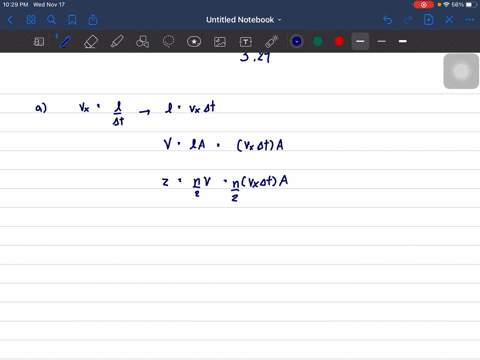 10:29 PM Wed Nov 17
56%
Untitled Notebook
3.29
a) vx = l/Δt → l = vx Δt
V = lA = (vx Δt) A
z = n/2 V = n/2 (vx Δt) A